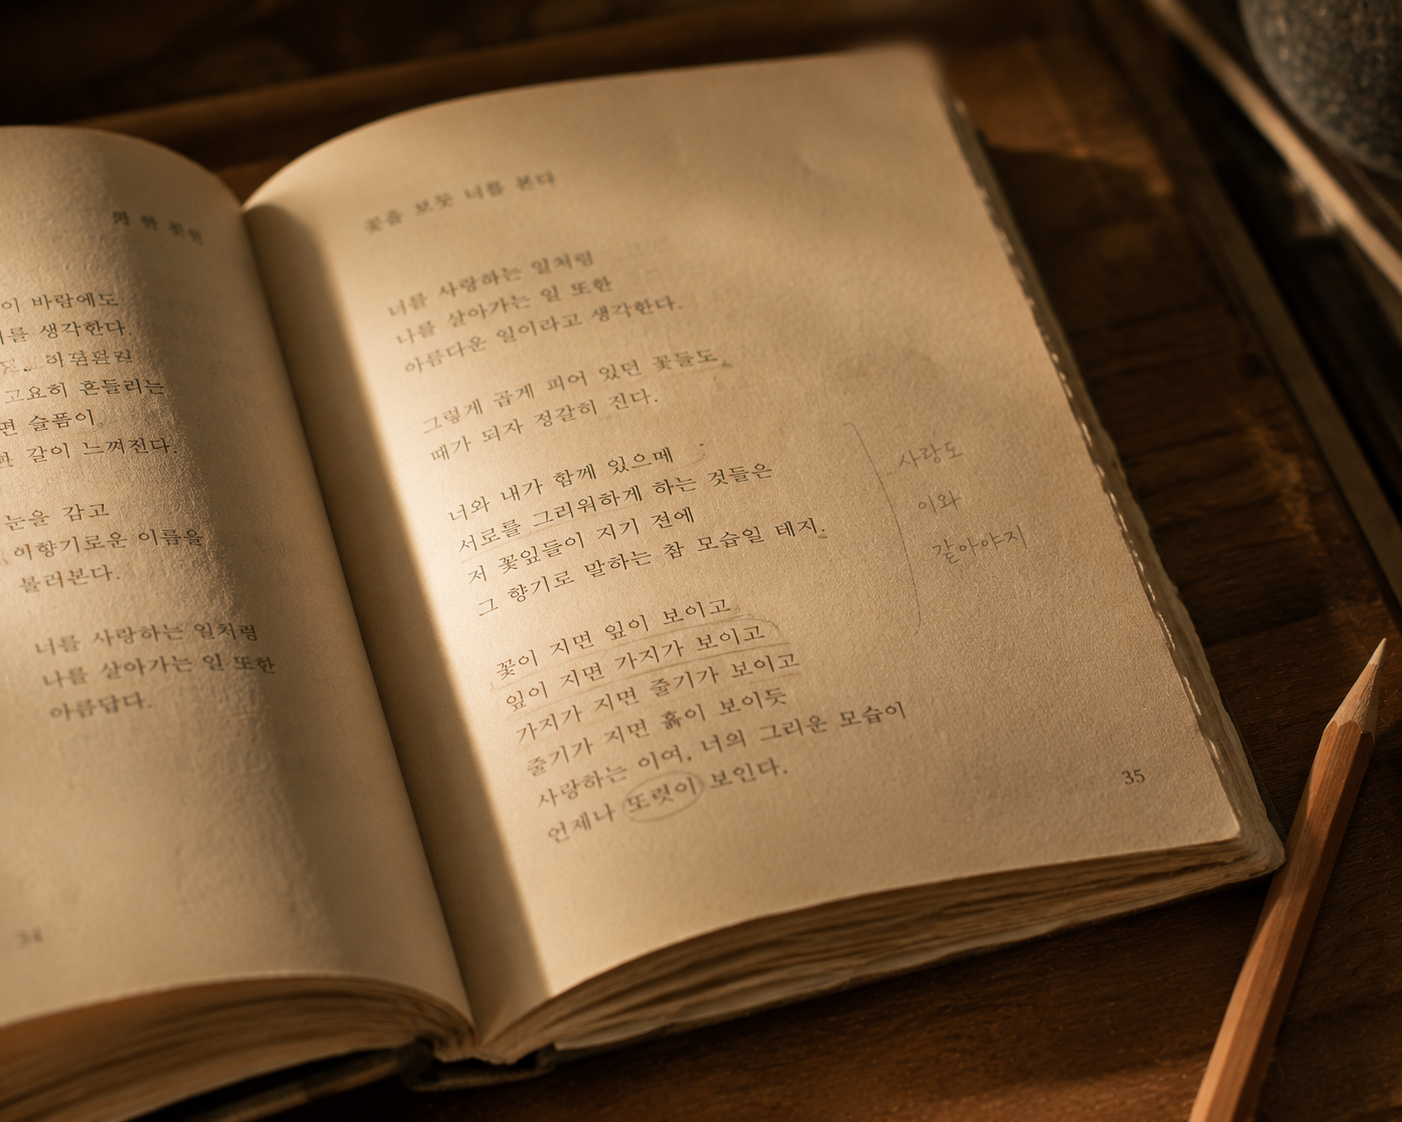 이 바람에도
를 생각한다.
고요히 흔들리는
편 슬픔이
같이 느껴전다.
눈을 감고
이향기로운 이름을
불러본다.
너를 사랑하는 일처렁
나를 살아가는 일 또한
아름답다.
34
꽃을 보듯 너를 본다
너를 사랑하는 일처럼
나를 살아가는 일 또한
아름다운 일이라고 생각한다.
그렇게 곱게 피어 있던 꽃들도
때가 되자 정갈히 진다.
너와 내가 함께 있으메
서로를 그리워하게 하는 것들은
저 꽃잎들이 지기 전에
그 향기로 말하는 참 모습일 테지.
꽃이 지면 잎이 보이고
잎이 지면 가지가 보이고
가지가 지면 줄기가 보이고
줄기가 지면 흙이 보이듯
사랑하는 이여, 너의 그리운 모습이
언제나 또렷이 보인다.
사랑도
이와
같아야지
35